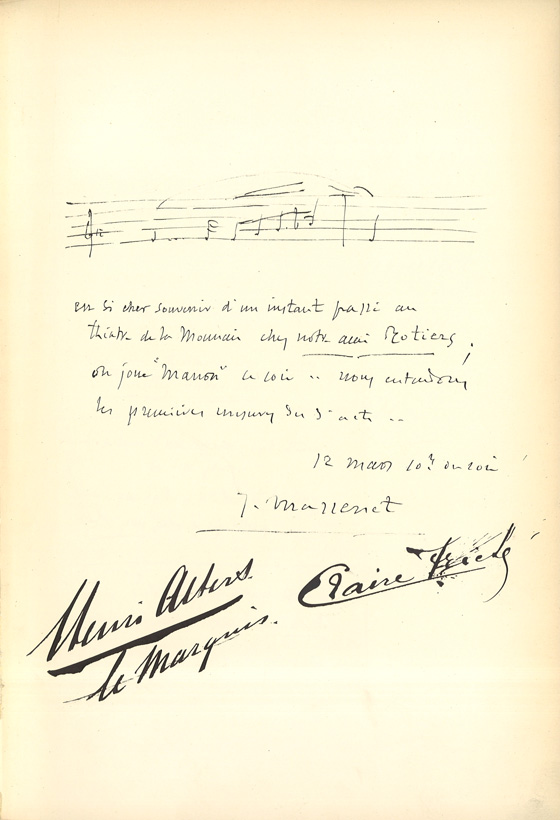 en si cher souvenir d'un instant passé au
théâtre de la Monnaie chez notre ami
on joue "Manon" ce soir .. nous entendons
les premières mesures du 3e acte ..
12 mars 10h du soir
J. Massenet
Henri Albers
le Marquis.
Claire Friché